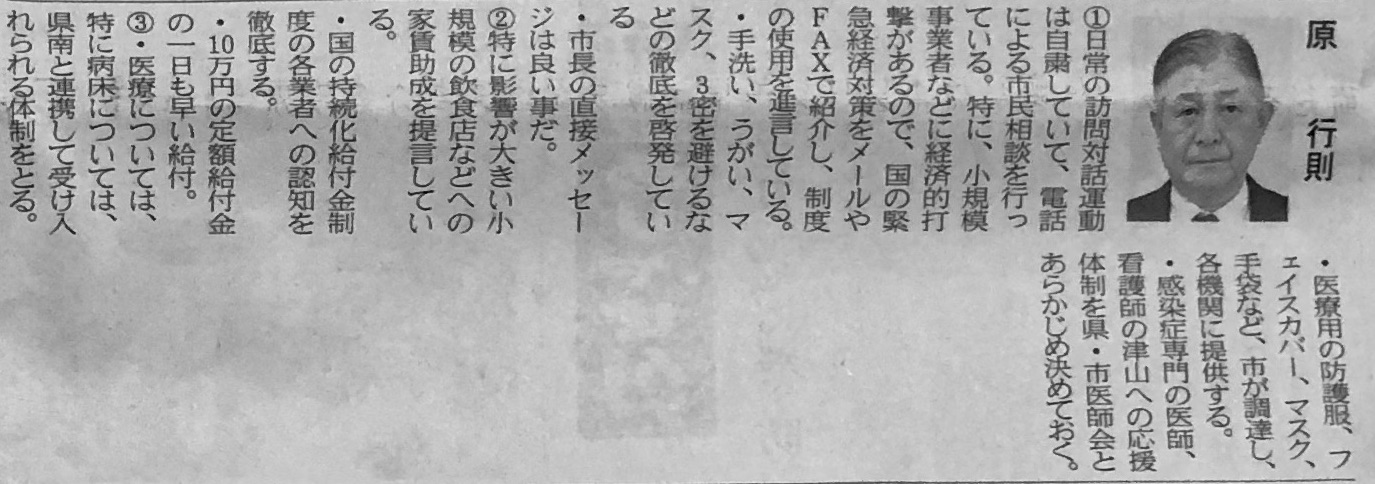 原　行則
①日常の訪問対話運動
は自粛していて、電話
による市民相談を行っ
ている。特に、小規模
事業者などに経済的打
撃があるので、国の緊
急経済対策をメールや
FAXで紹介し、制度
の使用を進言している。
・手洗い、うがい、マ
スク、3密を避けるな
どの徹底を啓発してい
る
・市長の直接メッセー
ジは良い事だ。
②特に影響が大きい小
規模の飲食店などへの
家賃助成を提言してい
る。
・国の持続化給付金制
度の各業者への認知を
徹底する。
・10万円の定額給付金
の一日も早い給付。
③・医療については、
特に病床については、
県南と連携して受け入
れられる体制をとる。
・医療用の防護服、フ
ェイスカバー、マスク、
手袋など、市が調達し、
各機関に提供する。
・感染症専門の医師、
看護師の津山への応援
体制を県・市医師会と
あらかじめ決めておく。